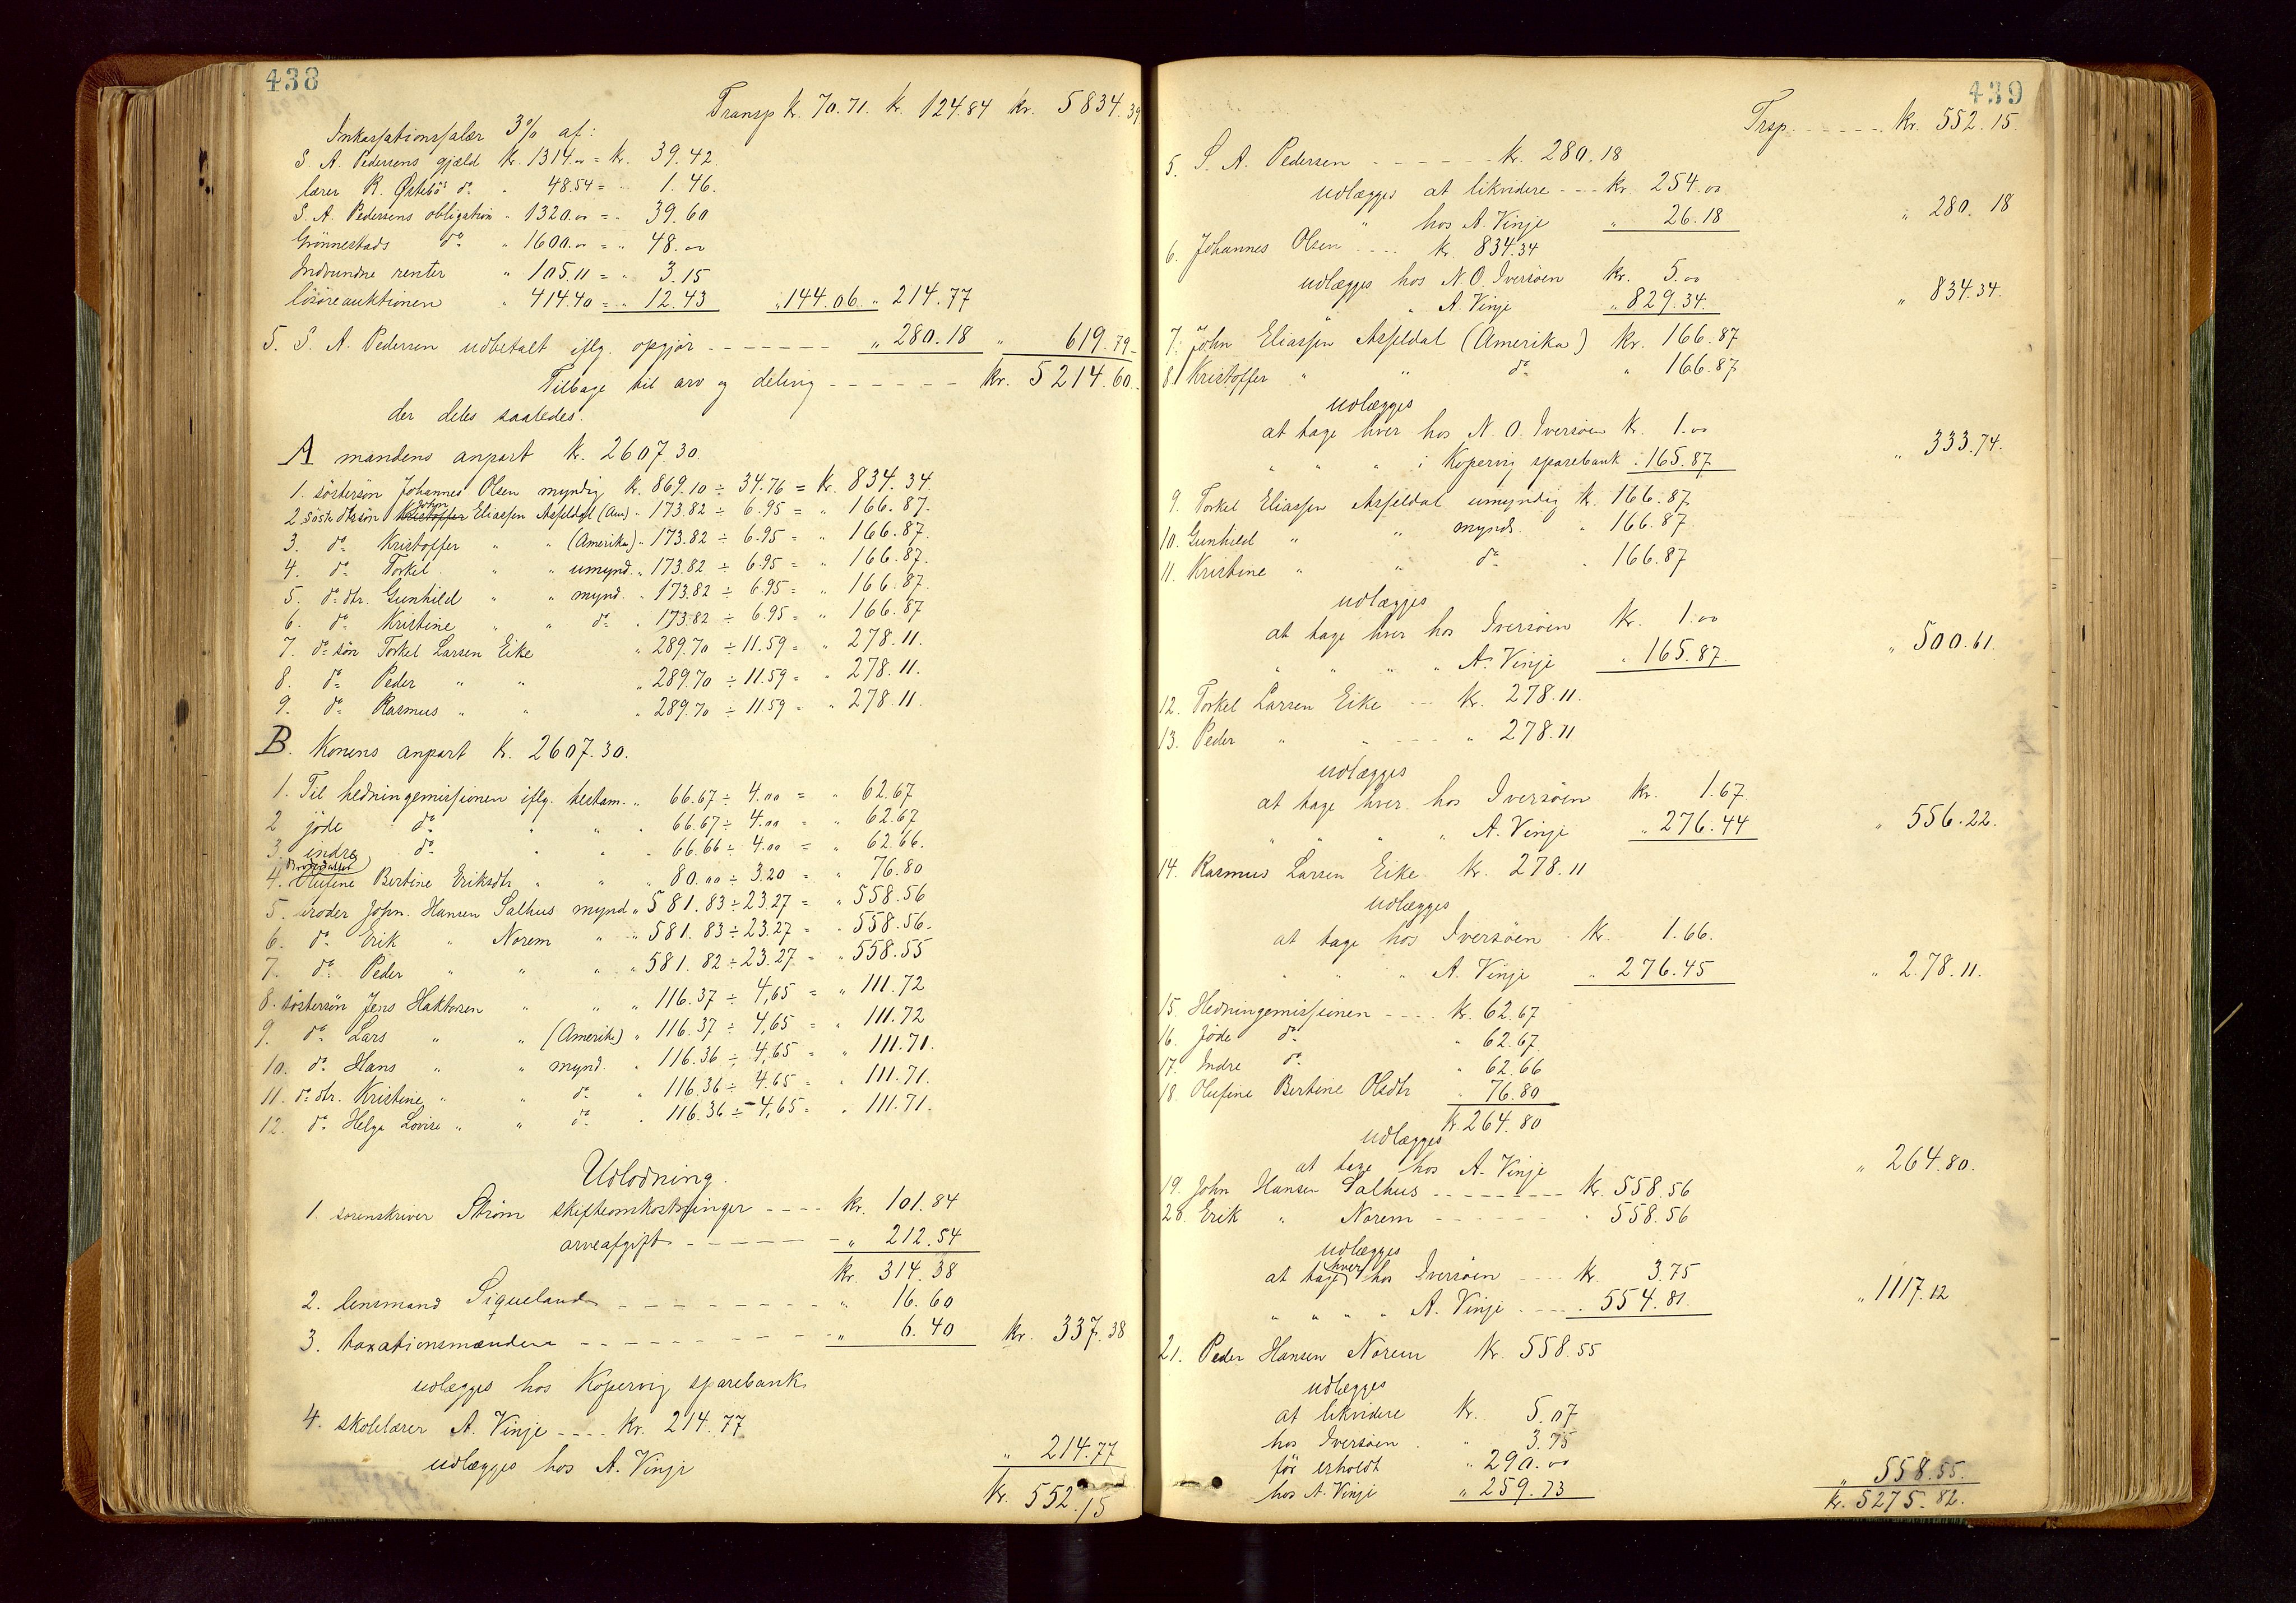 438
Transp kr. 70.71. kr. 124.84 kr. 5834.39
Inkassationssalær 3% af:
S. A. Pedersens gjæld kr. 1314.00 = kr. 39.42.
lærer R. Østebö's do. " 48.54 = " 1.46.
S. A. Pedersens obligation " 1320.00 = " 39.60
Grönnestads do " 1600.00 = " 48.00
Indvundne renter " 105.11 = " 3.15
lösöreauktionen " 414.40 = " 12.43 " 144.06. " 214.77
5. S. A. Pedersen udbetalt iflg. opgjör - - - - - - - " 280.18 " 619.79
Tilbage til arv og deling - - - - - - kr. 5214.60.
der deles saaledes.
A mandens anpart kr. 2607.30.
1. söstersön Johannes Olsen myndig kr. 869.10 ÷ 34.76 = kr. 834.34
2. söst. dtr. sön Kristoffer John Eliassen Asfeldal (Am) " 173.82 ÷ 6.95 = " 166.87.
3. do Kristoffer " " (Amerika) " 173.82 ÷ 6.95 = " 166.87.
4. do Torkel " " umynd. " 173.82 ÷ 6.95 = " 166.87.
5. do dtr. Gunhild " " mynd. " 173.82 ÷ 6.95 = " 166.87.
6. do Kristine " " do " 173.82 ÷ 6.95 = " 166.87
7. do sön Torkel Larsen Eike " 289.70 ÷ 11.59 = " 278.11.
8. do Peder " " " 289.70 ÷ 11.59 = " 278.11.
9. do Rasmus " " " 289.70 ÷ 11.59 = " 278.11.
B. Konens anpart kr. 2607.30.
1. Til hedningemissionen iflg. testam. " 66.67 ÷ 4.00 = " 62.67
2 jöde do " " " 66.67 ÷ 4.00 = " 62.67
3. indre do " " " 66.66 ÷ 4.00 = " 62.66.
4. Olufine Bertine Eriksdtr " " " 80.00 ÷ 3.20 = " 76.80
5. broder John. Hansen Salhus mynd " 581.83 ÷ 23.27 = " 558.56
6. do Erik " Norem " " 581.83 ÷ 23.27 = " 558.56.
7. do Peder " " " " 581.82 ÷ 23.27 = " 558.55
8. söstersön Jens Haktorsen " " " 116.37 ÷ 4,65 = " 111.72
9. do Lars " " (Amerika) " 116.37 ÷ 4,65 = " 111.72
10. do Hans " " mynd. " 116.36 ÷ 4,65 = " 111.71.
11. do dtr. Kristine " " do " 116.36 ÷ 4.65 = " 111.71.
12. do Helga Lovise " " do " 116.36 ÷ 4,65 = " 111.71.
Udlodning.
1. sorenskriver Ström skifteomkostninger - - - - kr. 101.84
arveafgift - - - - - - " 212.54
kr. 314.38
2. lensmand Siqueland - - - - - - - - " 16.60
3. taxationsmændene - - - - - - - - - " 6.40 kr. 337.38
udlægges hos Kopervig sparebank
4. skolelærer A. Vinje - - - - kr. 214.77
udlægges hos A. Vinje " 214.77
kr. 552.15
439
Trsp. - - - - - kr. 552.15.
5. S. A. Pedersen - - - - - - kr. 280.18
udlægges at likvidere - - - kr. 254.00
" hos A. Vinje " 26.18 " 280.18
6. Johannes Olsen - - - - kr. 834.34
udlægges hos N. O. Iversöen kr. 5.00
" " A. Vinje " 829.34. " 834.34.
7. John Eliassen Asfeldal (Amerika) kr. 166.87
8. Kristoffer " " do " 166.87
udlægges
at tage hver hos N. O. Iversöen kr. 1.00
" " " i Kopervig sparebank " 165.87 " 333.74.
9. Torkel Eliassen Asfeldal umyndig kr. 166.87.
10. Gunhild " " mynd. " 166.87.
11. Kristine " " do " 166.87
udlægges
at tage hver hos Iversöen kr. 1.00
" " " " A. Vinje " 165.87. " 500.61.
12. Torkel Larsen Eike - - - kr. 278.11.
13. Peder " " - - - " 278.11
udlægges
at tage hver hos Iversöen kr. 1.67.
" " " " A. Vinje " 276.44 " 556.22.
14. Rasmus Larsen Eike kr. 278.11
udlægges
at tage hos Iversöen kr. 1.66.
" " " A. Vinje " 276.45 " 278.11.
15. Hedningemissionen - - - - kr. 62.67
16. Jöde do " 62.67
17. Indre do " 62.66
18. Olufine Bertine Olsdtr " 76.80
kr. 264.80
udlægges
at tage hos A. Vinje " 264.80.
19. John Hansen Salhus - - - - - - - - kr. 558.56
20. Erik " Norem - - - - - - - " 558.56
udlægges
at tage hver hos Iversöen - - - - kr. 3.75
" " " " A. Vinje - - - - " 554.81. " 1117.12
21. Peder Hansen Norem kr. 558.55
udlægges
at likvidere kr. 5.07
hos Iversöen " 3.75
för erholdt " 290.00
hos A. Vinje " 259.73 " 558.55.
kr. 5275.82.